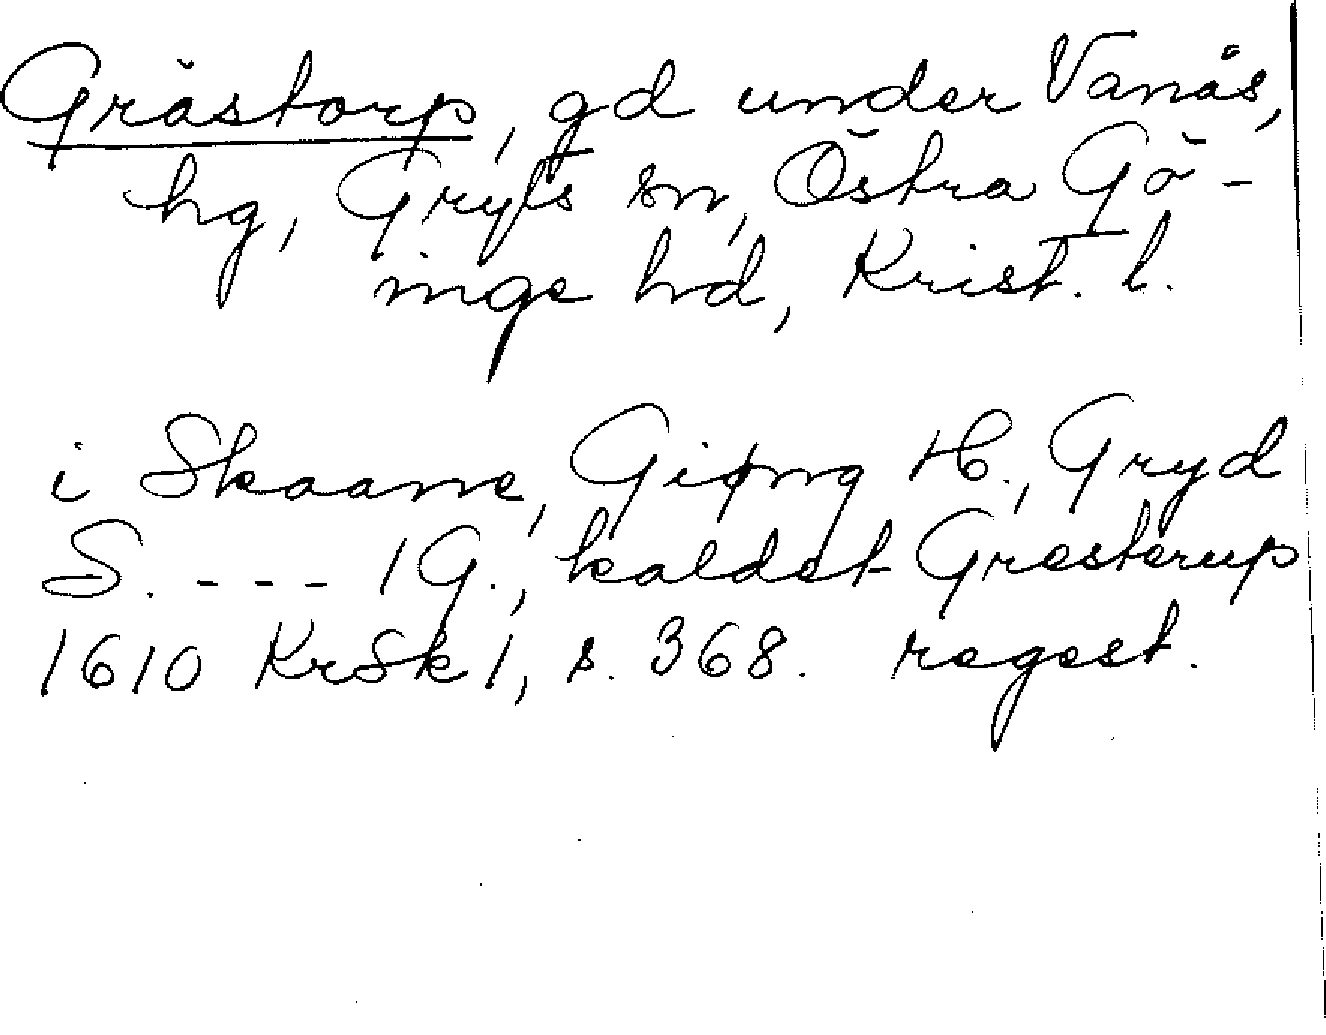 Gråstorp, gd under Vanås,
hg, Gryts sn, Östra Gö-
inge hd, Krist. l.
i Skaane, Giøng H., Gryd
S. - - - 1 G., kaldet Gresterup
1610 KrSk 1, s. 368. regest.